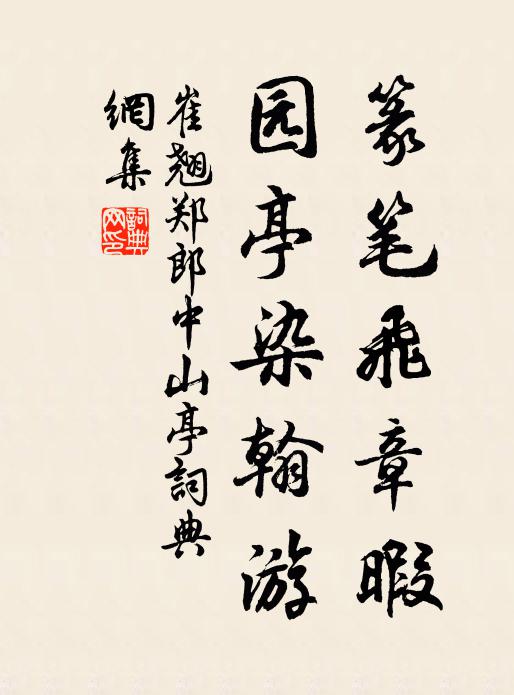 篆笔飞章暇
园亭染翰游
崔翘郑郎中山亭詞典
網集
詞典网印